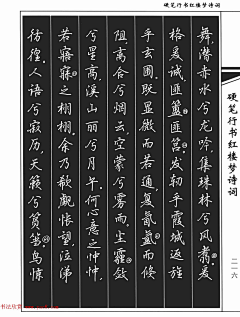 硬笔行书红楼梦诗词
硬笔行书红楼梦诗词
二一六
舞。潜赤水兮龙吟,集珠林兮凤翥。爰
格爰诚,匪簠匪筥。发轫乎霞城,返旌
乎玄圃。既显微而若通,复氤氲而倏
阻。离合兮烟云,空蒙兮雾雨。尘霾敛
兮星高,溪山丽兮月午。何心意之忡忡,
若寤寐之栩栩。余乃欷歔怅望,泣涕
彷徨。人语兮寂历,天籁兮筼筜。鸟惊